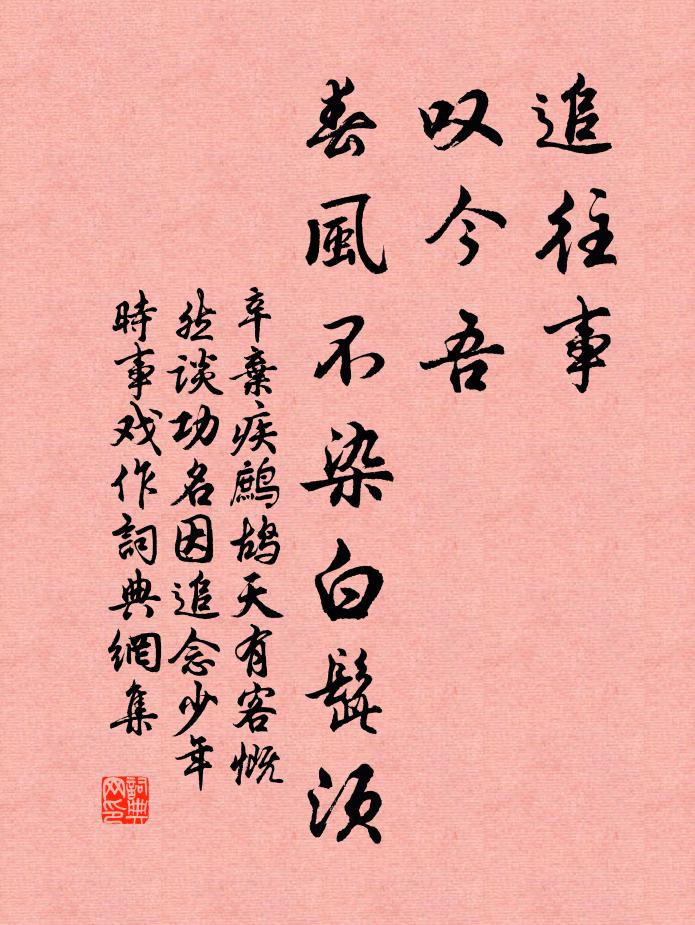 追往事
叹今吾
春風不染白髭须
辛棄疾鷓鴣天有客慨
然谈功名因追念少年
時事戏作詞典網集
詞典
网印